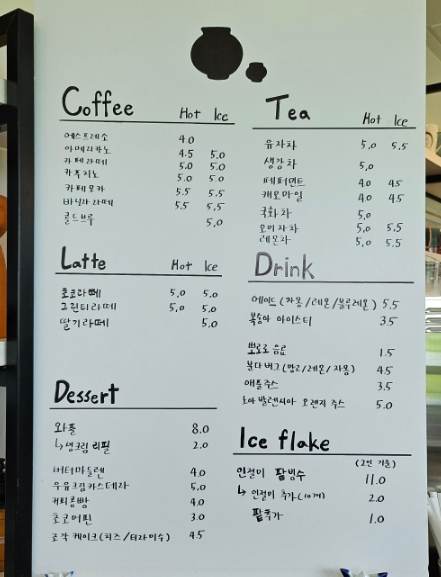 Coffee Hot Ice
에스프레소 4.0
아메리카노 4.5 5.0
카페라떼 5.0 5.0
카푸치노 5.0 5.0
카페모카 5.5 5.5
바닐라라떼 5.5 5.5
콜드브루 5.0
Latte Hot Ice
초코라떼 5.0 5.0
그린티라떼 5.0 5.0
딸기라떼 5.0
Dessert
와플 8.0
↳생크림 리필 2.0
버터마들렌 4.0
우유크림카스테라 5.0
커피콩빵 4.0
초코머핀 3.0
조각케이크(치즈/티라미수) 4.5
Tea Hot Ice
유자차 5.0 5.5
생강차 5.0
페퍼민트 4.0 4.5
캐모마일 4.0 4.5
국화차 5.0
오미자차 5.0 5.5
레몬차 5.0 5.5
Drink
에이드(자몽/레몬/블루레몬) 5.5
복숭아 아이스티 3.5
뽀로로 음료 1.5
봉다버그(망고/레몬/자몽) 4.5
애플주스 3.5
발렌시아 오렌지 주스 5.0
Ice flake
(2인 기준)
인절미 팥빙수 11.0
↳ 인절미 추가(10개) 2.0
팥추가 1.0